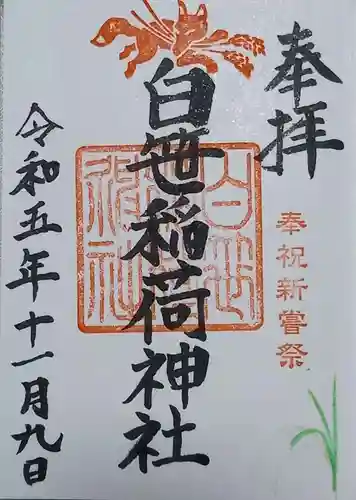 奉拝
奉祝新嘗祭
白笹稲荷神社
令和五年十一月九日